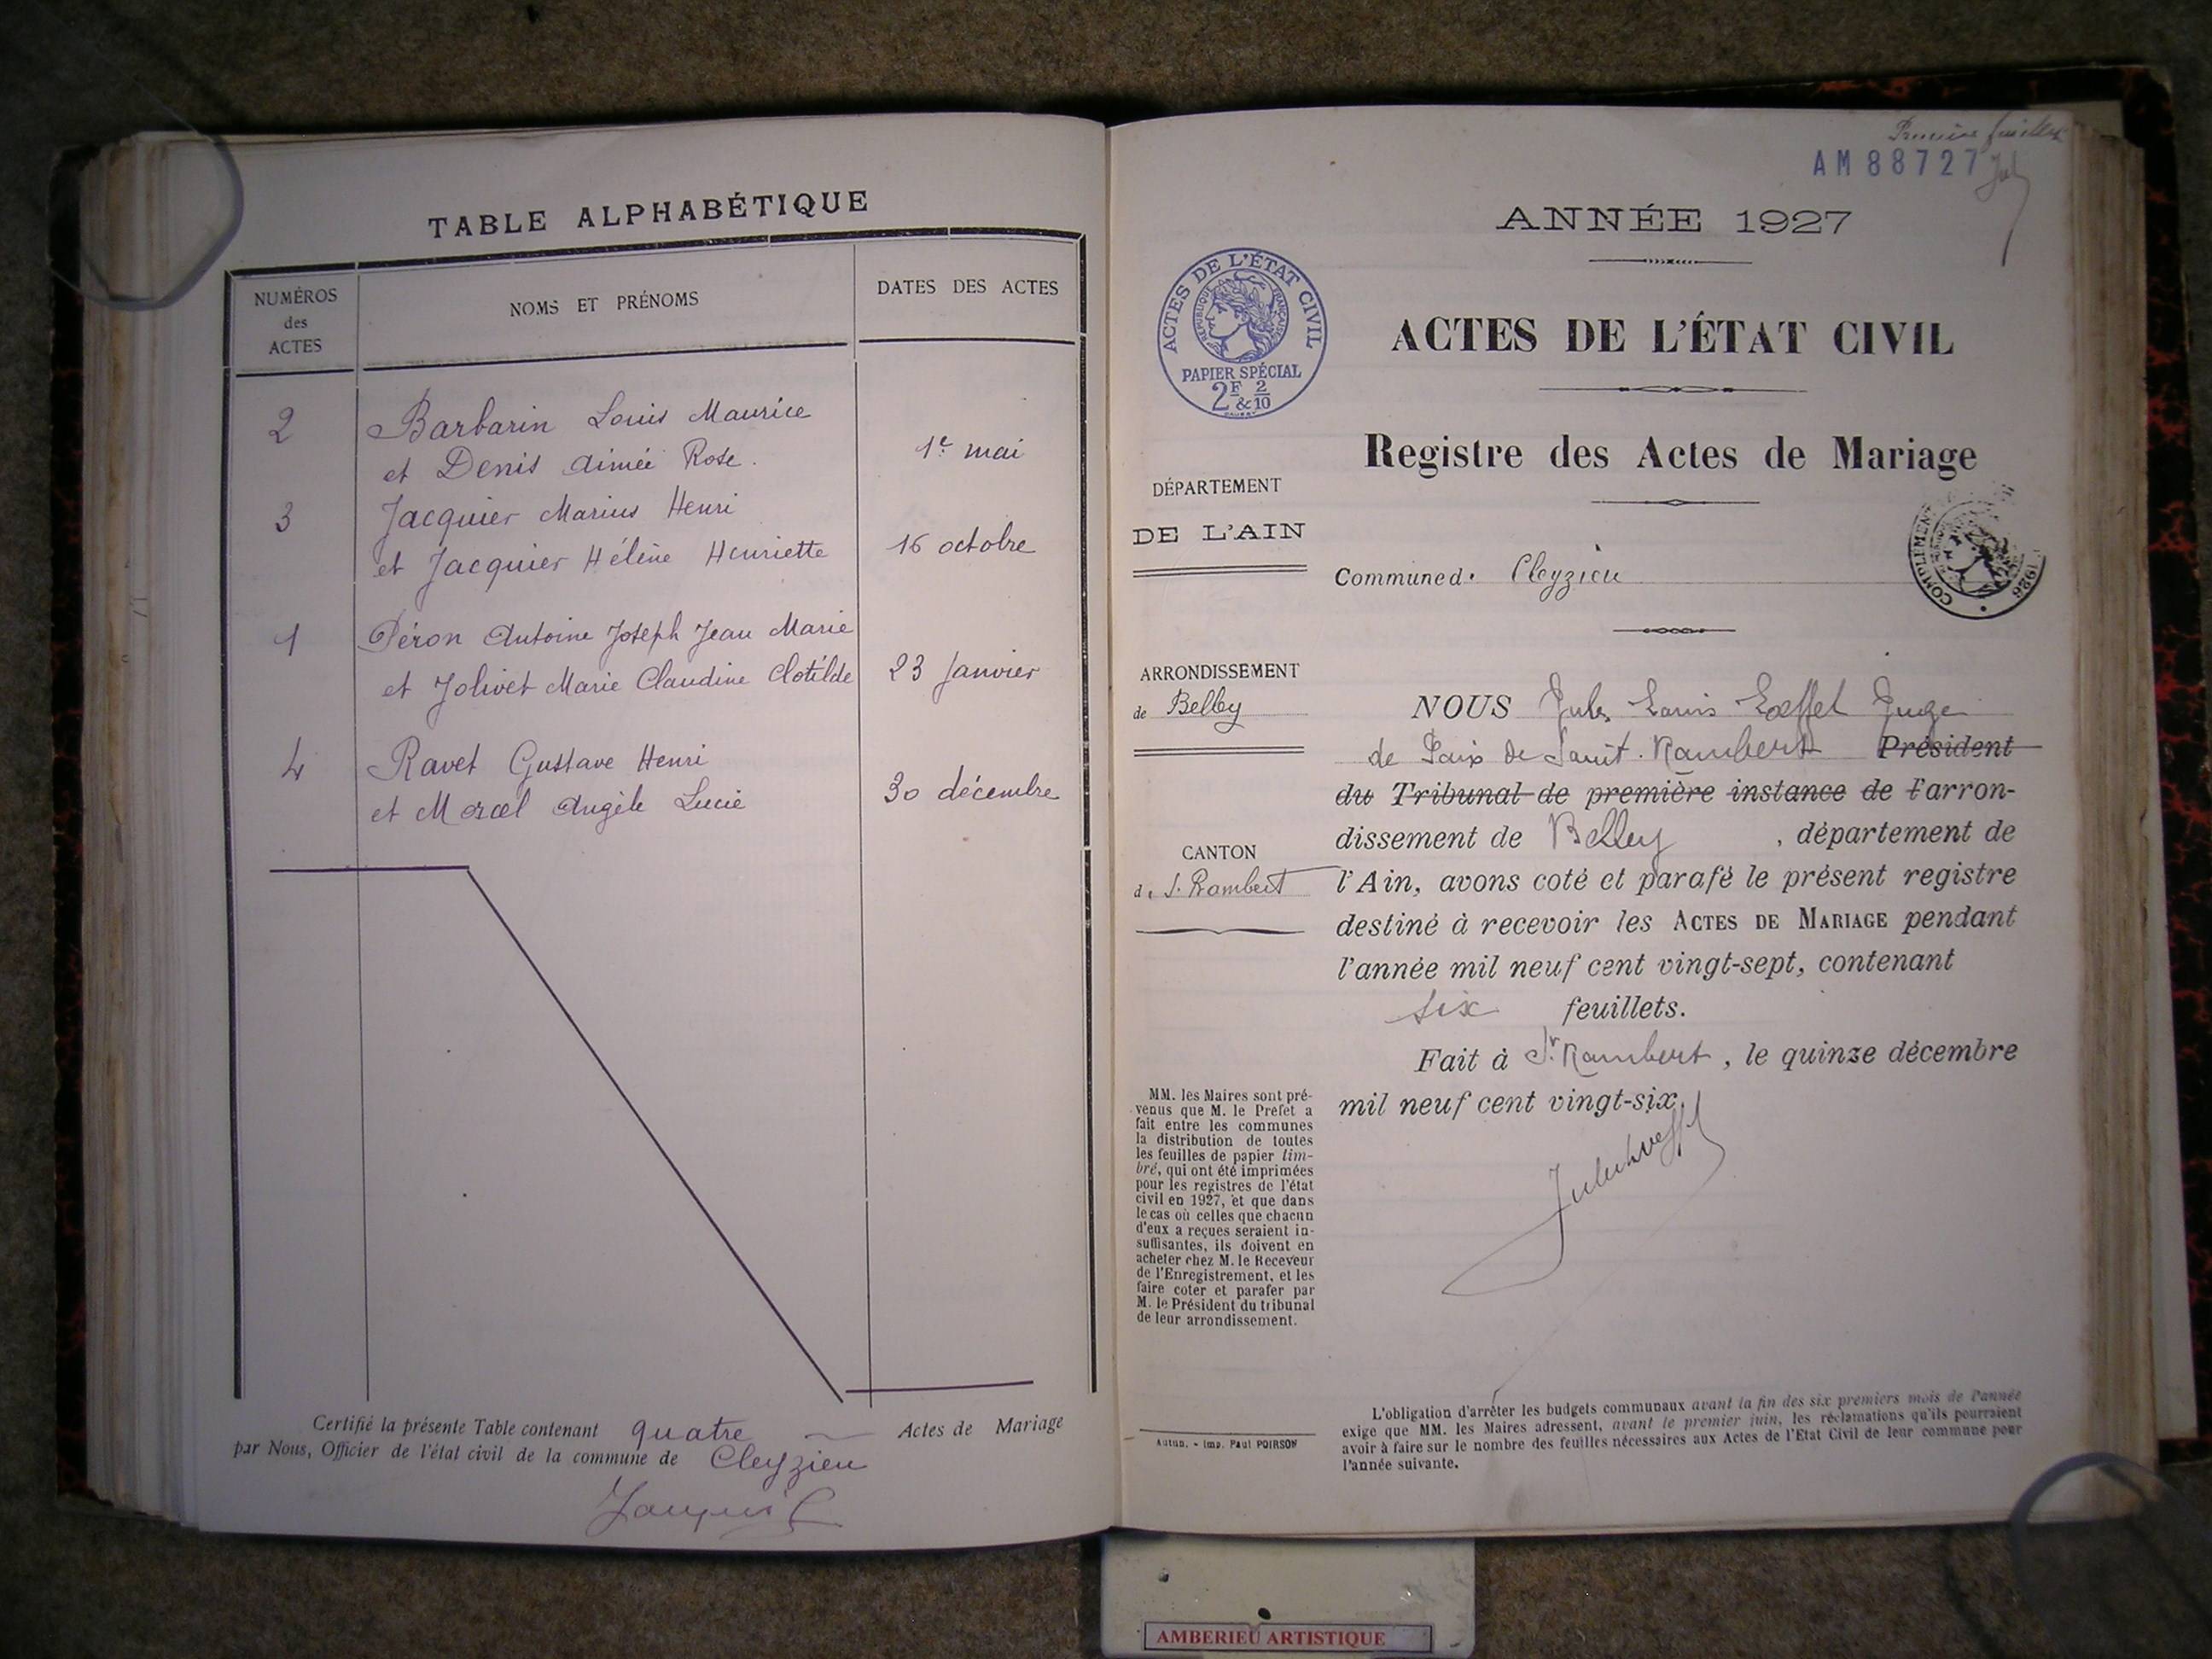 TABLE ALPHABÉTIQUE
NUMÉROS
des
ACTES
NOMS ET PRÉNOMS
DATES DES ACTES
2
Barbarin Louis Maurice
et Denis Aimée Rose.
1er mai
3
Jacquier Marius Henri
et Jacquier Hélène Henriette
16 octobre
1
Péron Antoine Joseph Jean Marie
et Jolivet Marie Claudine Clotilde
23 Janvier
4
Ravet Gustave Henri
et Morel Angèle Lucie
30 décembre
Certifié la présente Table contenant quatre Actes de Mariage
par Nous, Officier de l'état civil de la commune de Cleyzieu
AM 88727
ANNÉE 1927
ACTES DE L'ÉTAT CIVIL
RÉPUBLIQUE FRANÇAISE
PAPIER SPÉCIAL
2F & 2/10
ACTES DE L'ÉTAT CIVIL
Registre des Actes de Mariage
DÉPARTEMENT
DE L'AIN
COMPLÉMENT
1926
Commune d. Cleyzieu
ARRONDISSEMENT
de Belley
CANTON
d. S. Rambert
NOUS Jules Louis Juge
de Paix de Saint. Rambert Président
du Tribunal de première instance de l'arron-
dissement de Belley, département de
l'Ain, avons coté et parafé le présent registre
destiné à recevoir les ACTES DE MARIAGE pendant
l'année mil neuf cent vingt-sept, contenant
six feuillets.
Fait à St. Rambert, le quinze décembre
mil neuf cent vingt-six.
MM. les Maires sont pré-
venus que M. le Préfet a
fait entre les communes
la distribution de toutes
les feuilles de papier tim-
bré, qui ont été imprimées
pour les registres de l'état
civil en 1927, et que dans
le cas où celles que chacun
d'eux a reçues seraient in-
suffisantes, ils doivent en
acheter chez M. le Receveur
de l'Enregistrement, et les
faire coter et parafer par
M. le Président du tribunal
de leur arrondissement.
Autun. - Imp. Paul POIRSON
L'obligation d'arrêter les budgets communaux avant la fin des six premiers mois de l'année
exige que MM. les Maires adressent, avant le premier juin, les réclamations qu'ils pourraient
avoir à faire sur le nombre des feuilles nécessaires aux Actes de l'Etat Civil de leur commune pour
l'année suivante.
AMBERIEU ARTISTIQUE